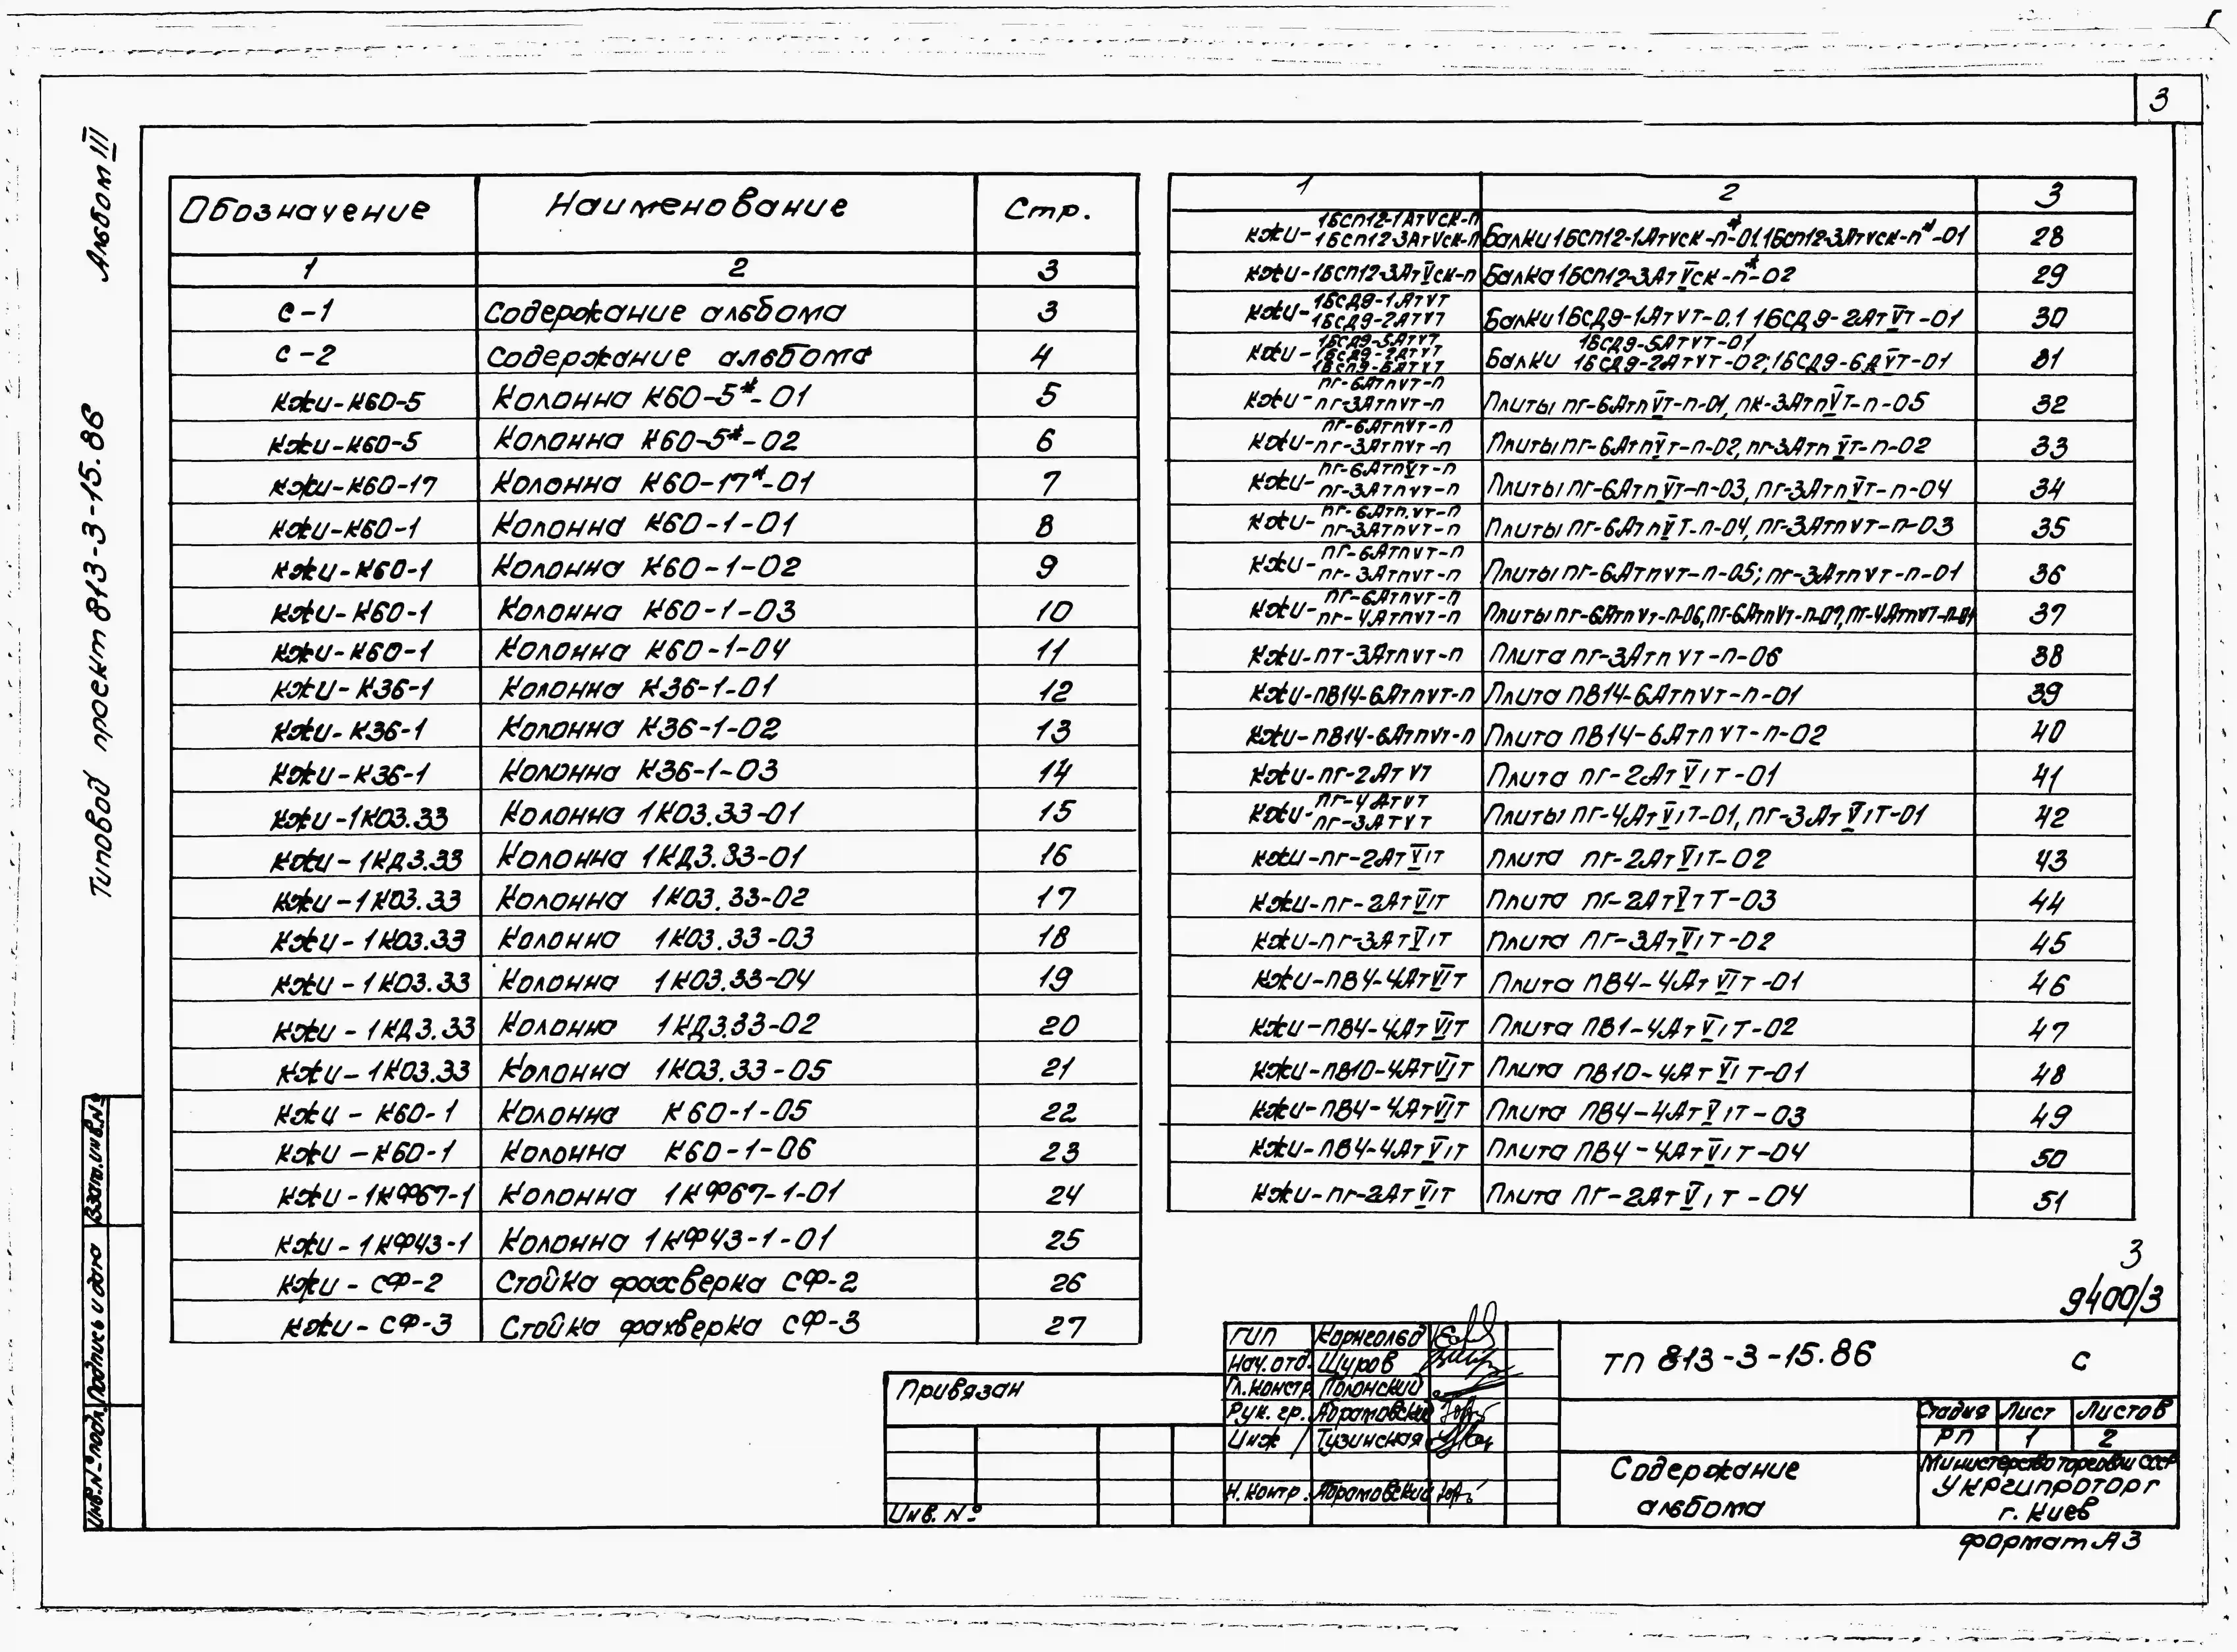 3
Альбом III
Типовой проект 813-3-15.86
Обозначение Наименование Стр.
1 2 3
С-1 Содержание альбома 3
С-2 Содержание альбома 4
КЖИ-К60-5 Колонна К60-5*-01 5
КЖИ-К60-5 Колонна К60-5*-02 6
КЖИ-К60-17 Колонна К60-17*-01 7
КЖИ-К60-1 Колонна К60-1-01 8
КЖИ-К60-1 Колонна К60-1-02 9
КЖИ-К60-1 Колонна К60-1-03 10
КЖИ-К60-1 Колонна К60-1-04 11
КЖИ-К36-1 Колонна К36-1-01 12
КЖИ-К36-1 Колонна К36-1-02 13
КЖИ-К36-1 Колонна К36-1-03 14
КЖИ-1К03.33 Колонна 1К03.33-01 15
КЖИ-1КД3.33 Колонна 1КД3.33-01 16
КЖИ-1К03.33 Колонна 1К03.33-02 17
КЖИ-1К03.33 Колонна 1К03.33-03 18
КЖИ-1К03.33 Колонна 1К03.33-04 19
КЖИ-1КД3.33 Колонна 1КД3.33-02 20
КЖИ-1К03.33 Колонна 1К03.33-05 21
КЖИ-К60-1 Колонна К60-1-05 22
КЖИ-К60-1 Колонна К60-1-06 23
КЖИ-1КФ67-1 Колонна 1КФ67-1-01 24
КЖИ-1КФ43-1 Колонна 1КФ43-1-01 25
КЖИ-СФ-2 Стойка фахверка СФ-2 26
КЖИ-СФ-3 Стойка фахверка СФ-3 27
1 2 3
1БСП12-1АтVСК-П
КЖИ-1БСП12-3АтVСК-П Балки 1БСП12-1АтVСК-П*-01. 1БСП12-3АтVСК-П*-01 28
КЖИ-1БСП12-3АтVСК-П Балка 1БСП12-3АтVСК-П*-02 29
1БСД9-1АтVТ
КЖИ-1БСД9-2АтVТ Балки 1БСД9-1АтVТ-0.1 1БСД9-2АтVТ-01 30
1БСД9-5АтVТ-01
КЖИ- Балки 1БСД9-2АтVТ-02; 1БСД9-6АVТ-01 31
ПГ-6АтпVТ-П
КЖИ-ПГ-3АтпVТ-П Плиты ПГ-6АтпVТ-П-01, ПК-3АтпVТ-П-05 32
ПГ-6АтпVТ-П
КЖИ-ПГ-3АтпVТ-П Плиты ПГ-6АтпVТ-П-02, ПГ-3АтпVТ-П-02 33
ПГ-6АтпVТ-П
КЖИ-ПГ-3АтпVТ-П Плиты ПГ-6АтпVТ-П-03, ПГ-3АтпVТ-П-04 34
ПГ-6Атп.VТ-П
КЖИ-ПГ-3АтпVТ-П Плиты ПГ-6АтпVТ-П-04, ПГ-3АтпVТ-П-03 35
ПГ-6АтпVТ-П
КЖИ-ПГ-3АтпVТ-П Плиты ПГ-6АтпVТ-П-05; ПГ-3АтпVТ-П-01 36
ПГ-6АтпVТ-П
КЖИ-ПГ-4АтпVТ-П Плиты ПГ-6АтпVТ-П-06, ПГ-6АтпVТ-П-07, ПГ-4АтпVТ-П-01 37
КЖИ-ПТ-3АтпVТ-П Плита ПГ-3АтпVТ-П-06 38
КЖИ-ПВ14-6АтпVТ-П Плита ПВ14-6АтпVТ-П-01 39
КЖИ-ПВ14-6АтпVТ-П Плита ПВ14-6АтпVТ-П-02 40
КЖИ-ПГ-2АтVТ Плита ПГ-2АтVIТ-01 41
ПГ-4АтVТ
КЖИ-ПГ-3АтVТ Плиты ПГ-4АтVIТ-01, ПГ-3АтVIТ-01 42
КЖИ-ПГ-2АтVIТ Плита ПГ-2АтVIТ-02 43
КЖИ-ПГ-2АтVIТ Плита ПГ-2АтVтТ-03 44
КЖИ-ПГ-3АтVIТ Плита ПГ-3АтVIТ-02 45
КЖИ-ПВ4-4АтVIТ Плита ПВ4-4АтVIТ-01 46
КЖИ-ПВ4-4АтVIТ Плита ПВ1-4АтVIТ-02 47
КЖИ-ПВ10-4АтVIТ Плита ПВ10-4АтVIТ-01 48
КЖИ-ПВ4-4АтVIТ Плита ПВ4-4АтVIТ-03 49
КЖИ-ПВ4-4АтVIТ Плита ПВ4-4АтVIТ-04 50
КЖИ-ПГ-2АтVIТ Плита ПГ-2АтVIТ-04 51
3
9400/3
Взам.инв.№
Подпись и дата
Инв.№ подл.
Привязан
Инв. №
ГИП Корнгольд
Нач.отд. Щуров
Гл.констр. Полонский
Рук. гр. Абрамовский
Инж Тузинская
Н.контр. Абрамовский
ТП 813-3-15.86 С
Стадия Лист Листов
РП 1 2
Содержание
альбома
Министерство торговли СССР
Укргипроторг
г. Киев
Формат А3